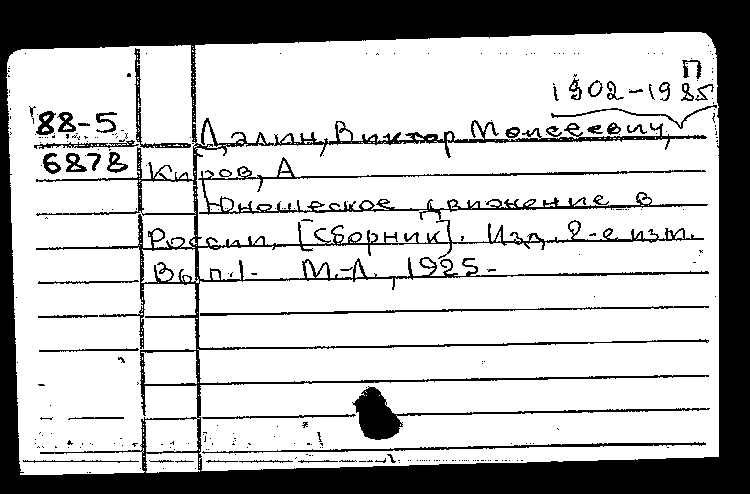 П
1902-1985
88-5 Далин, Виктор Моисеевич,
6878 Киров, А
Юношеское движение в
России, [Сборник]. Изд. 2-е изм.
Вып.1. М.-Л., 1925.